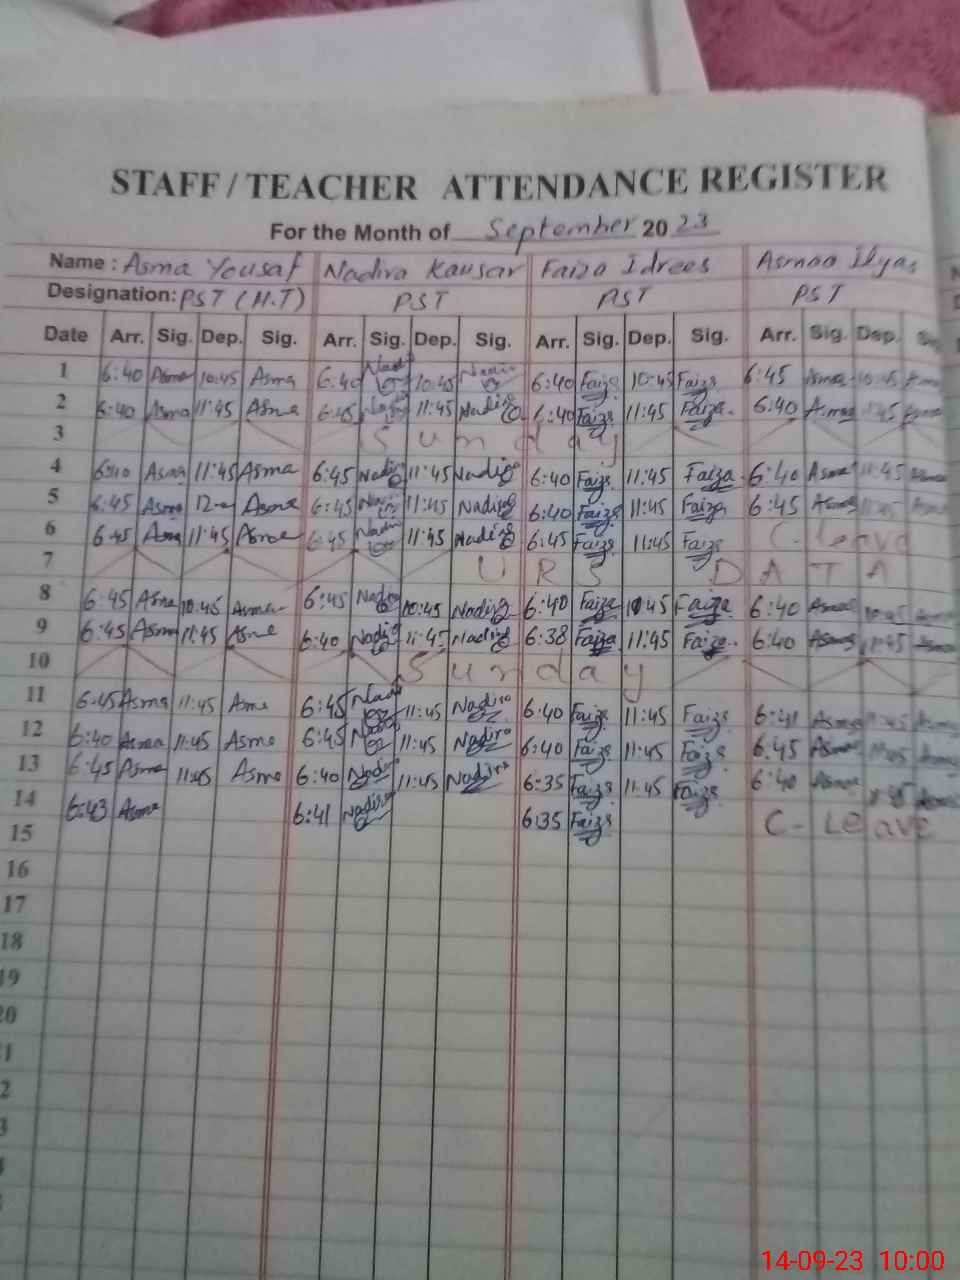 STAFF / TEACHER ATTENDANCE REGISTER
For the Month of September 20 23
Name : Asma Yousaf Nadira Kausar Faiza Idrees Asmaa Ilyas
Designation: PST (H.T) PST PST PST
Date Arr. Sig. Dep. Sig. Arr. Sig. Dep. Sig. Arr. Sig. Dep. Sig. Arr. Sig. Dep. Sig.
1 6:40 Asma 10:45 Asma 6:40 10:45 6:40 Faiza 10:45 Faiza 6:45 Asmaa 10:45
2 6:40 Asma 11:45 Asma 6:45 11:45 Nadira 6:40 Faiza 11:45 Faiza 6:40 Asmaa 11:45
3 Sunday
4 Asma 11:45 Asma 6:45 Nadira 11:45 Nadira 6:40 Faiza 11:45 Faiza 6:40 Asmaa 11:45
5 6:45 Asma Asma 6:45 11:45 Nadira 6:40 Faiza 11:45 Faiza 6:45 Asmaa 11:45
6 6:45 Asma 11:45 Asma 6:45 Nadira 11:45 Nadira 6:45 Faiza 11:45 Faiza C-leave
7 URS DATA
8 6:45 Asma 10:45 Asma 6:45 Nadira 10:45 Nadira 6:40 Faiza 10:45 Faiza 6:40 Asmaa 10:45
9 6:45 Asma 11:45 Asma 6:40 Nadira 11:45 Nadira 6:38 Faiza 11:45 Faiza 6:40 Asmaa 11:45
10 Sunday
11 6:45 Asma 11:45 Asma 6:45 11:45 Nadira 6:40 Faiza 11:45 Faiza 6:41 Asmaa 11:45
12 6:40 Asma 11:45 Asma 6:45 11:45 Nadira 6:40 Faiza 11:45 Faiza 6:45 Asmaa 11:45
13 6:45 Asma 11:45 Asma 6:40 Nadira 11:45 Nadira 6:35 Faiza 11:45 Faiza 6:40 Asmaa
14 6:43 Asma 6:41 Nadira 6:35 Faiza C-Leave
15
16
17
18
19
20
14-09-23 10:00